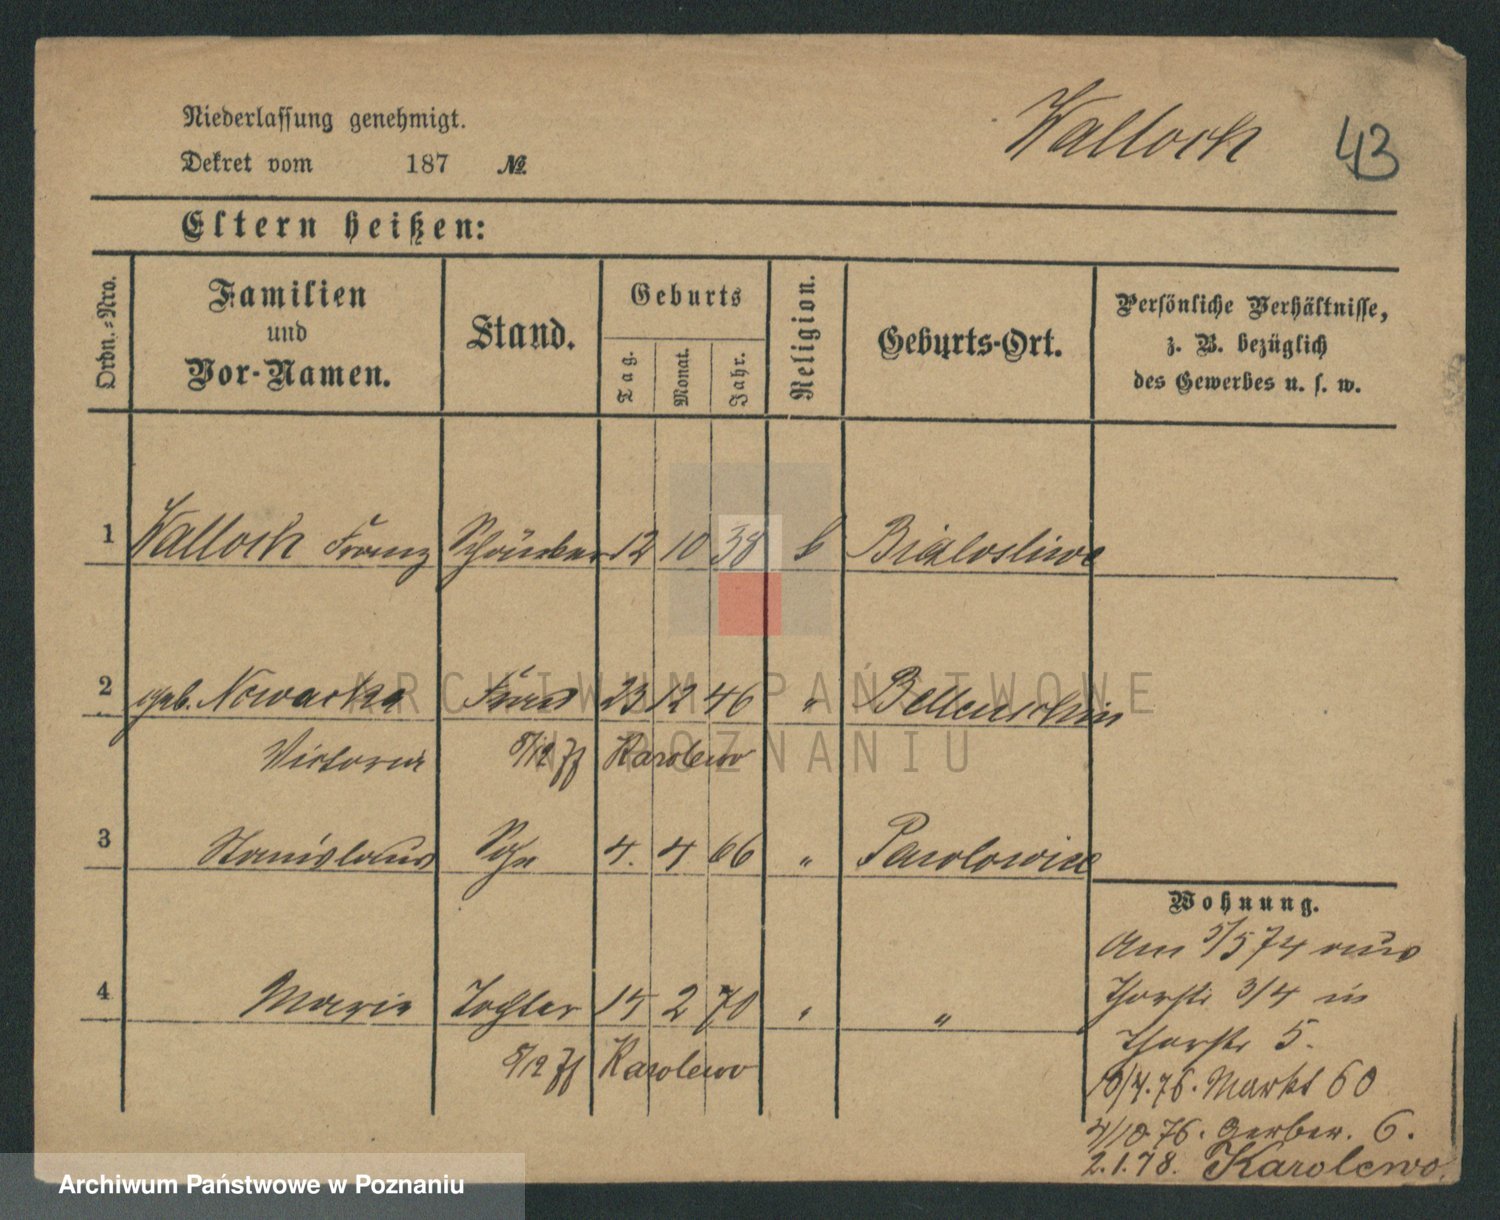 Niederlassung genehmigt.
Walloch
43
Dekret vom 187 №
Eltern heißen:
Ordn.=Nro.
Familien
und
Vor-Namen.
Stand.
Geburts
Tag.
Monat.
Jahr.
Religion.
Geburts-Ort.
Persönliche Verhältnisse,
z. B. bezüglich
des Gewerbes u. s. w.
1 Walloch Franz 12 10 38 k Bialosliwe
2 geb. Nowacka Frau 23 12 46 " Bellenschin
Victoria 5/12 77 Karolewo
3 Stanislaus Sohn 4. 4 66 " Pawlowice
4 Marie Tochter 14 2 70 " "
5/12 77 Karolewo
Wohnung.
Am 5/5 74 aus
Thorstr 3/4 in
Thorstr 5.
10/4.76. Markt 60
4/10 76. Gerber. 6.
2.1.78. Karolewo.
ARCHIWUM PAŃSTWOWE
W POZNANIU
Archiwum Państwowe w Poznaniu